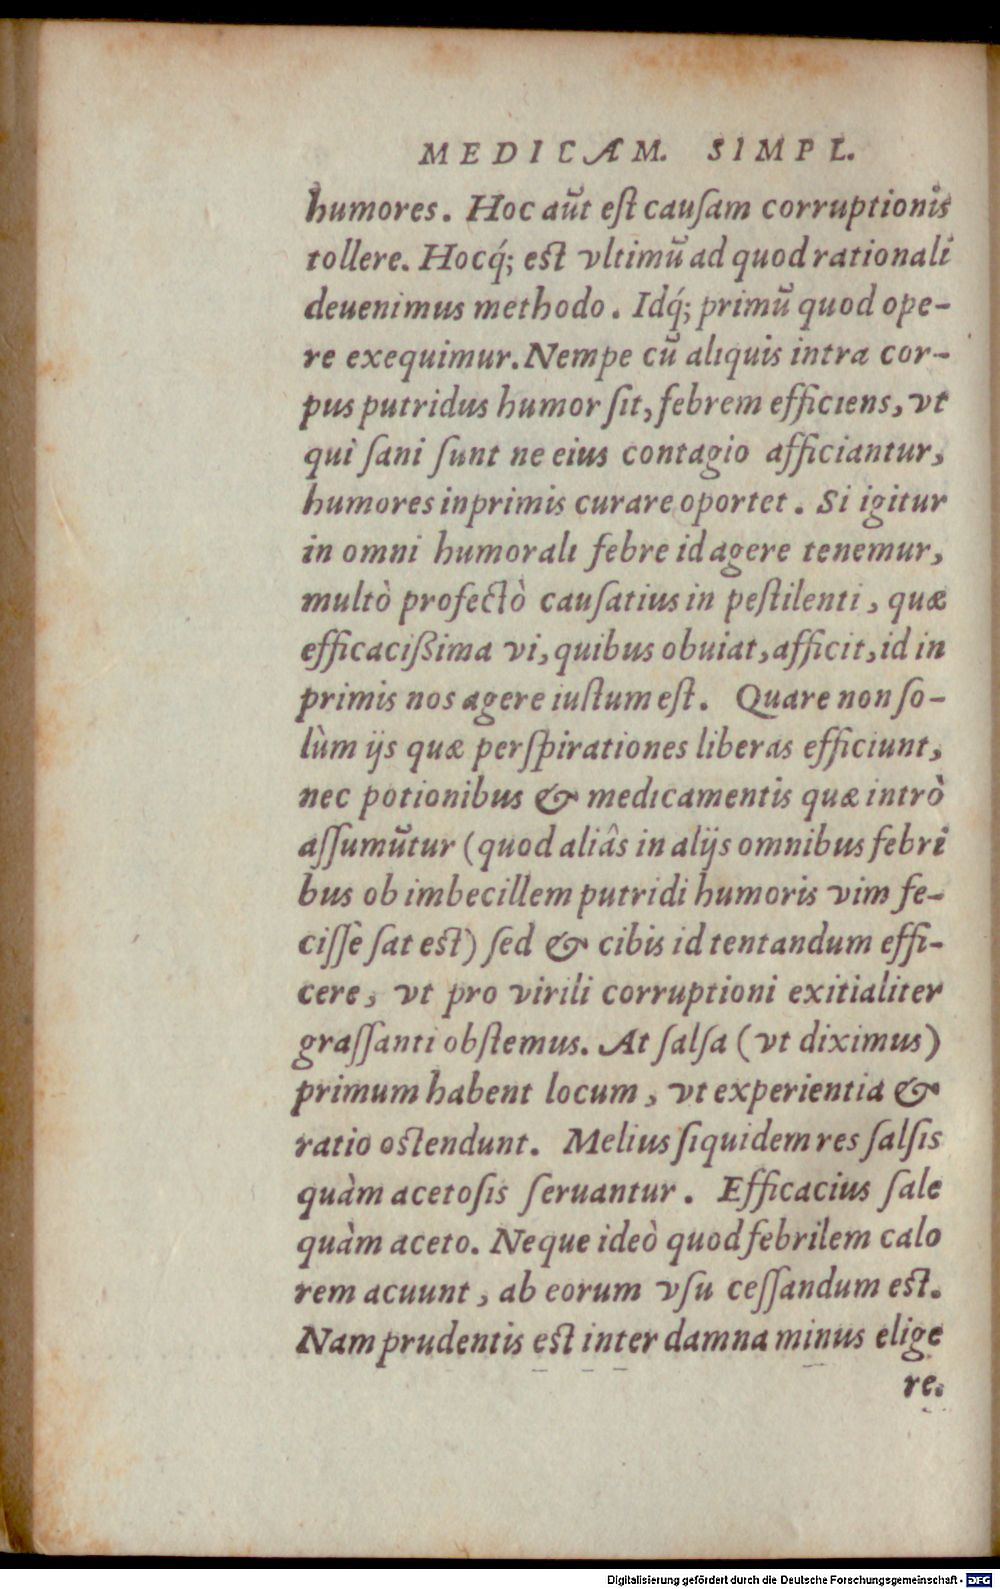 MEDICAM. SIMPL.
humores. Hoc aũt eſt cauſam corruptionis
tollere. Hocq́; eſt vltimũ ad quod rationali
deuenimus methodo. Idq́; primũ quod ope-
re exequimur. Nempe cũ aliquis intra cor-
pus putridus humor ſit, febrem efficiens, vt
qui ſani ſunt ne eius contagio afficiantur,
humores inprimis curare oportet. Si igitur
in omni humorali febre id agere tenemur,
multò profectò cauſatius in peſtilenti, quæ
efficacißima vi, quibus obuiat, afficit, id in
primis nos agere iuſtum eſt. Quare non ſo-
lùm ijs quæ perſpirationes liberas efficiunt,
nec potionibus & medicamentis quæ intrò
aſſumũtur (quod aliâs in alijs omnibus febri
bus ob imbecillem putridi humoris vim fe-
ciſſè ſat eſt) ſed & cibis id tentandum effi-
cere, vt pro virili corruptioni exitialiter
graſſanti obſtemus. At ſalſa (vt diximus)
primum habent locum, vt experientia &
ratio oſtendunt. Melius ſiquidem res ſalſis
quàm acetoſis ſeruantur. Efficacius ſale
quàm aceto. Neque ideò quod febrilem calo
rem acuunt, ab eorum vſu ceſſandum eſt.
Nam prudentis eſt inter damna minus elige
re.
Digitalisierung gefördert durch die Deutsche Forschungsgemeinschaft - DFG